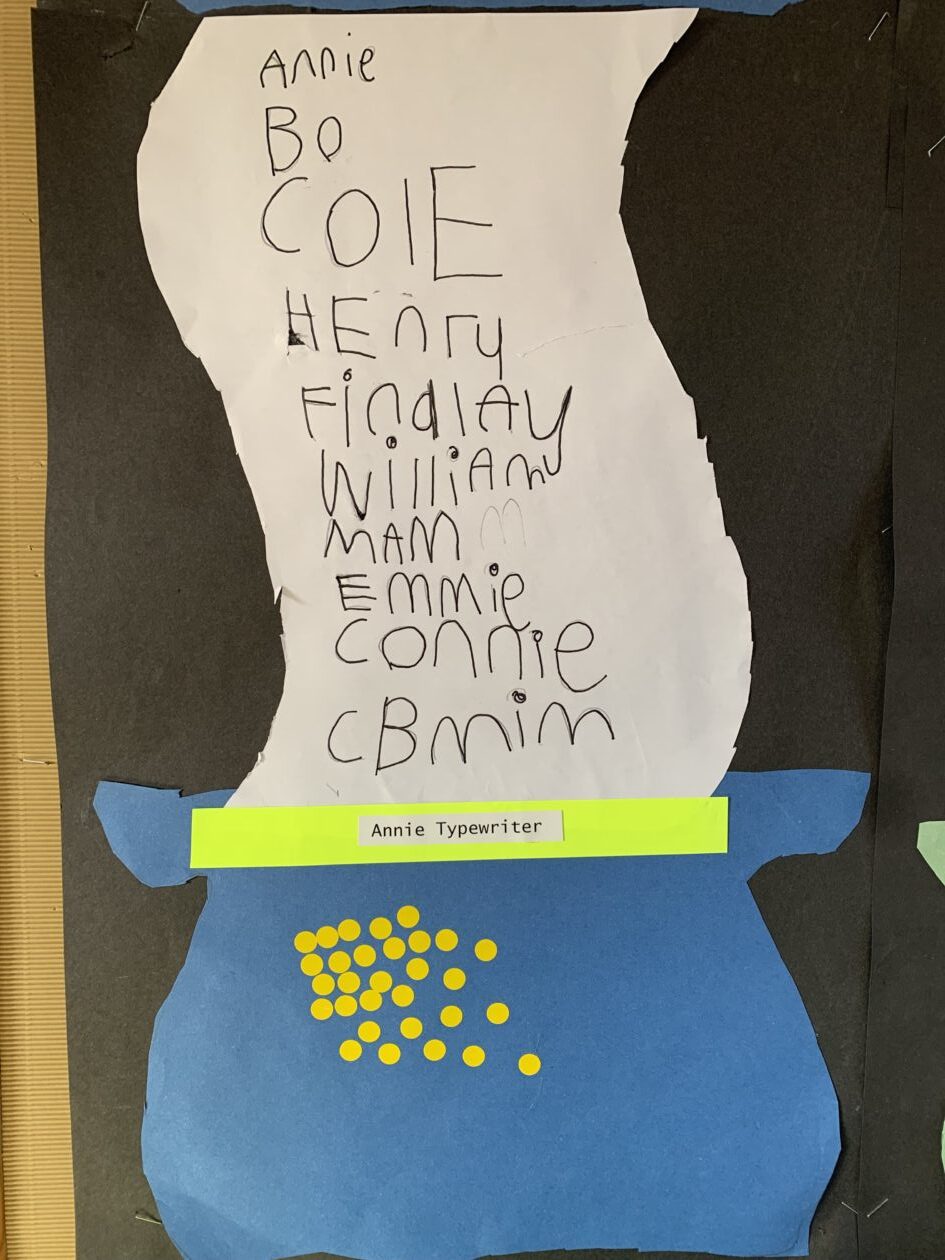 Annie
BO
COlE
HEnry
FindlAy
WilliAm
MAM m
Emmie
connie
CBmim
Annie Typewriter